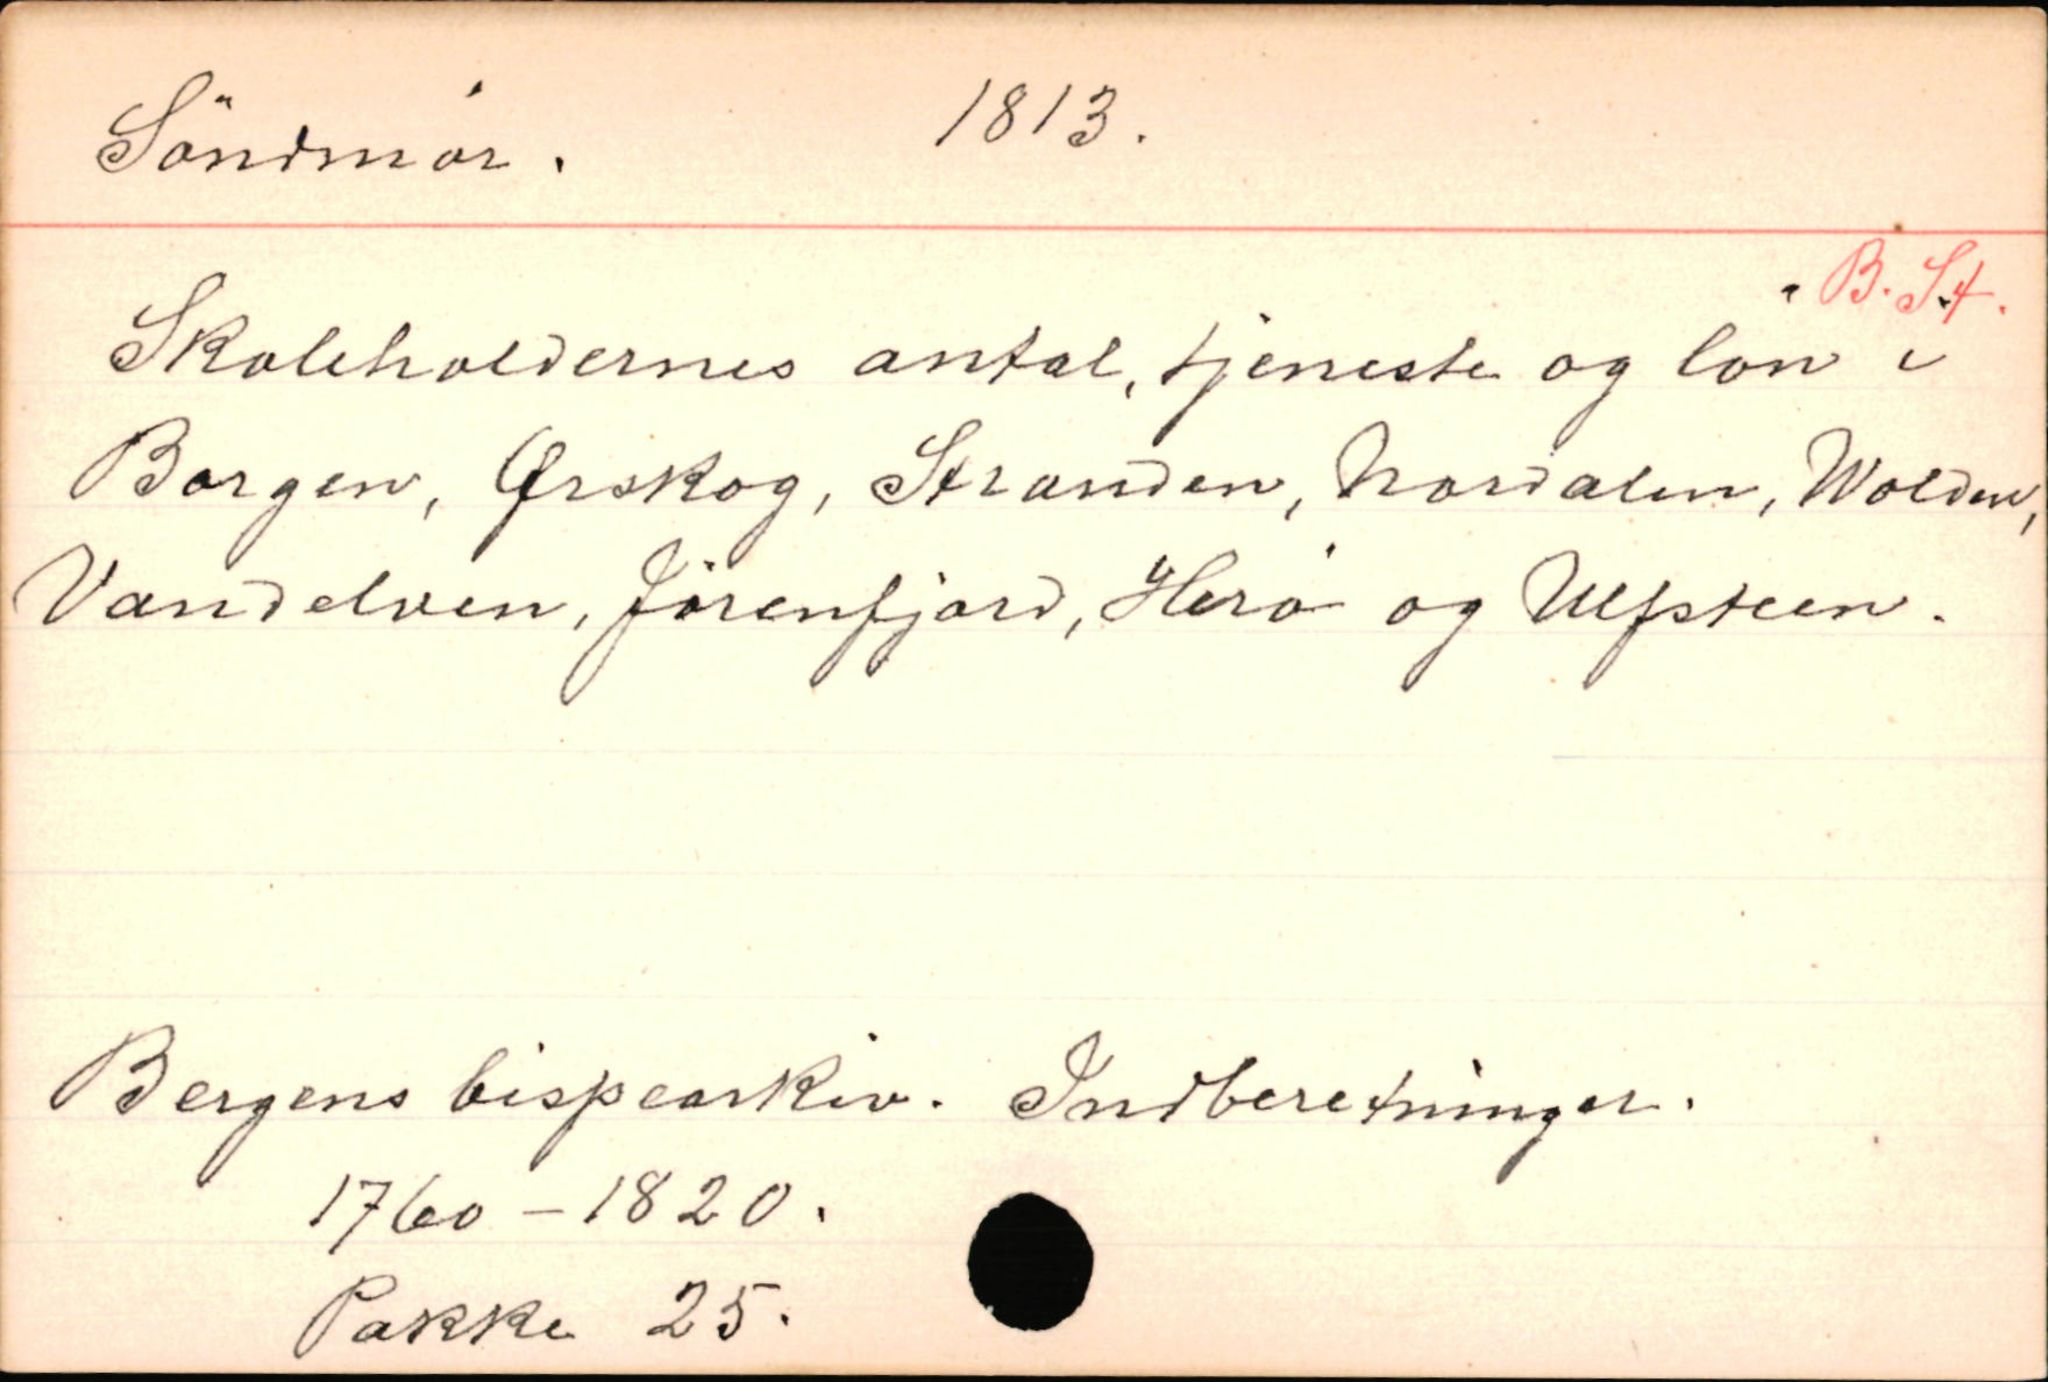 Söndmör. 1813.
B. St.
Skoleholdernes antal, tjeneste og lön i
Borgen, Ørskog, Stranden, Nordalen, Wolden,
Vandelven, Jörenfjord, Herö og Ulfsteen.
Bergens bispearkiv. Indberetninger.
1760-1820.
Pakke 25.